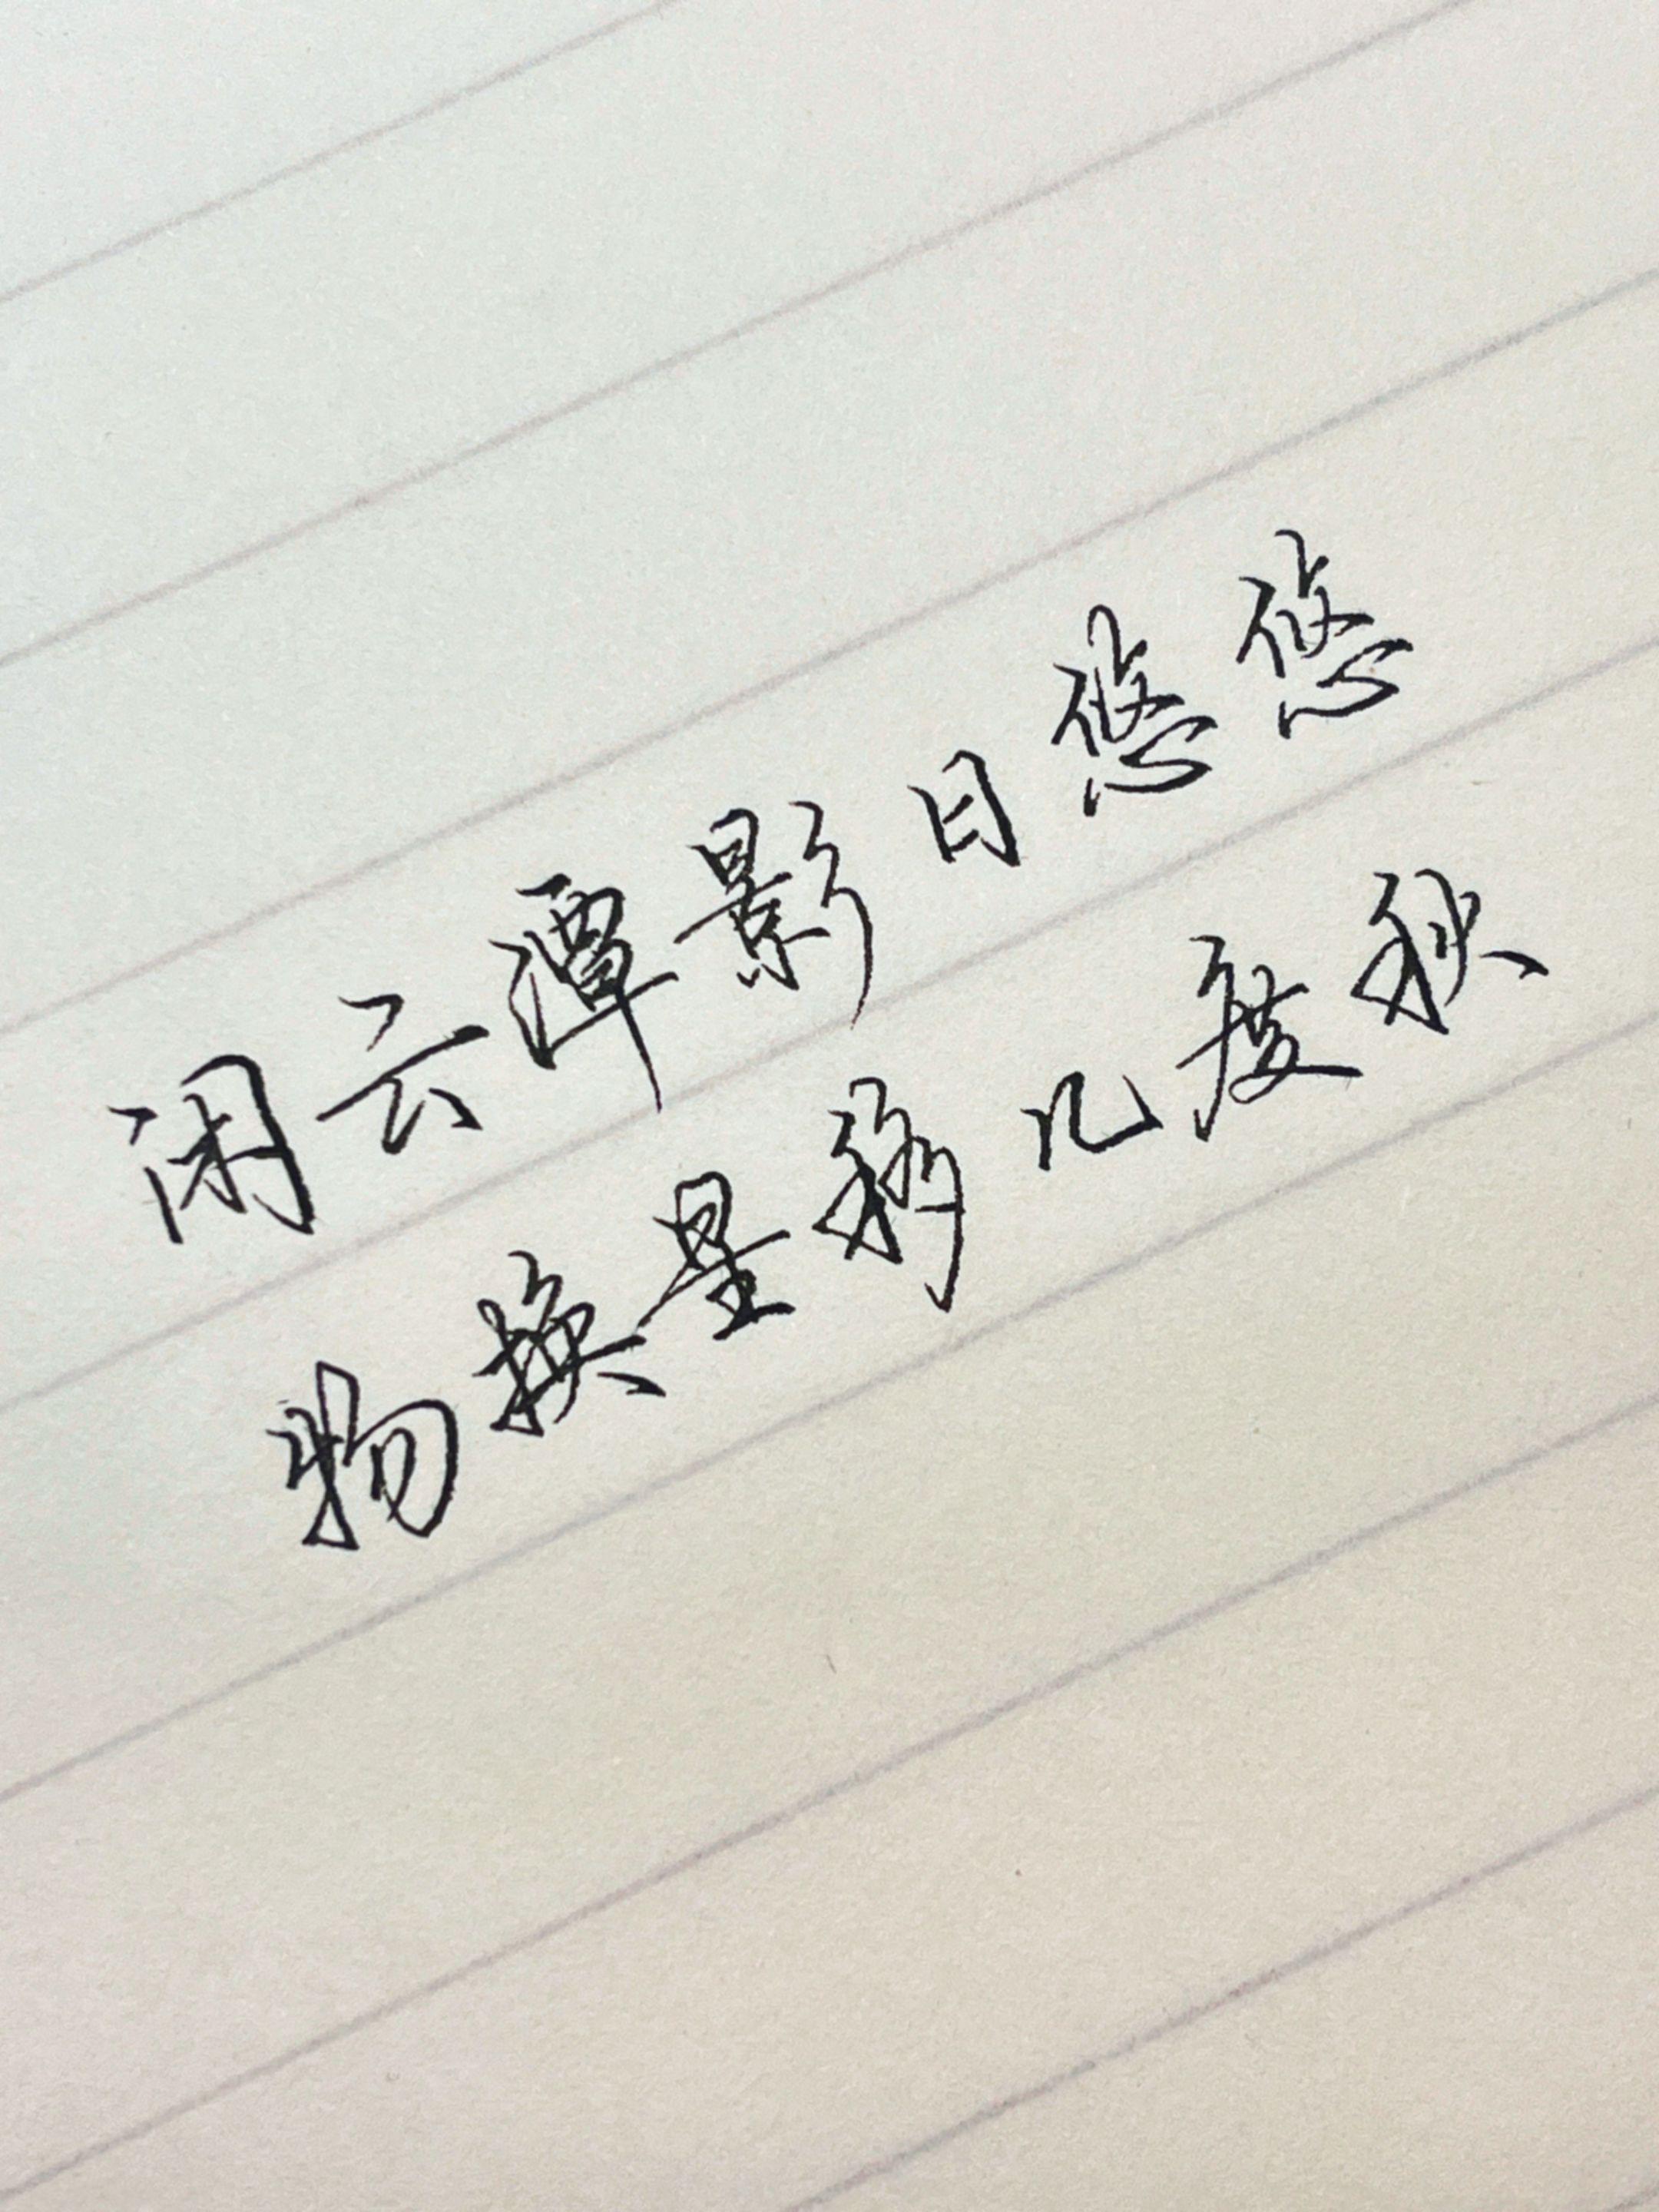 闲云潭影日悠悠
物换星移几度秋